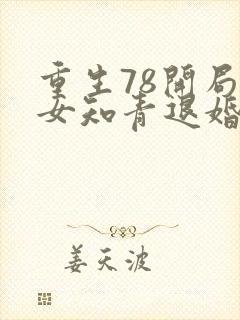 重生78開局
女知青退婚
姜天波